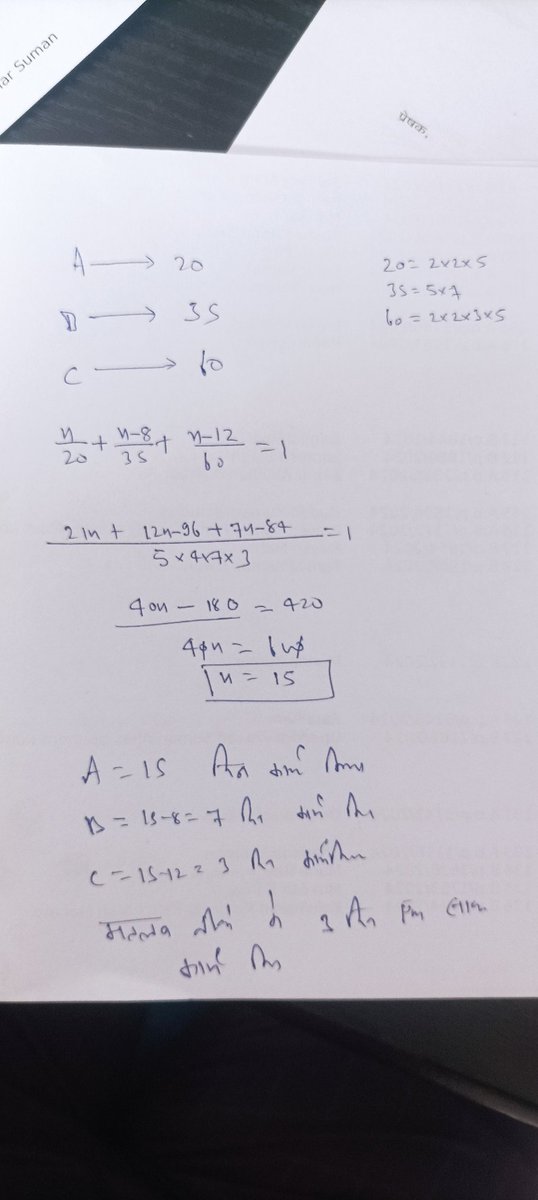 ar Suman
प्रेषक,
A → 20
20 = 2×2×5
B → 35
35 = 5×7
C → 60
60 = 2×2×3×5
n/20 + n-8/35 + n-12/60 = 1
21n + 12n-96 + 7n-84 / 5×4×7×3 = 1
40n - 180 = 420
40n = 600
n = 15
A = 15 दिन कार्य किया
B = 15-8 = 7 दिन कार्य किया
C = 15-12 = 3 दिन कार्य किया
मतलब तीनों ने 3 दिन एक साथ
कार्य किया